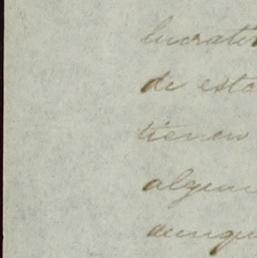 lucrati
de esta
tienen
algun
aunqu